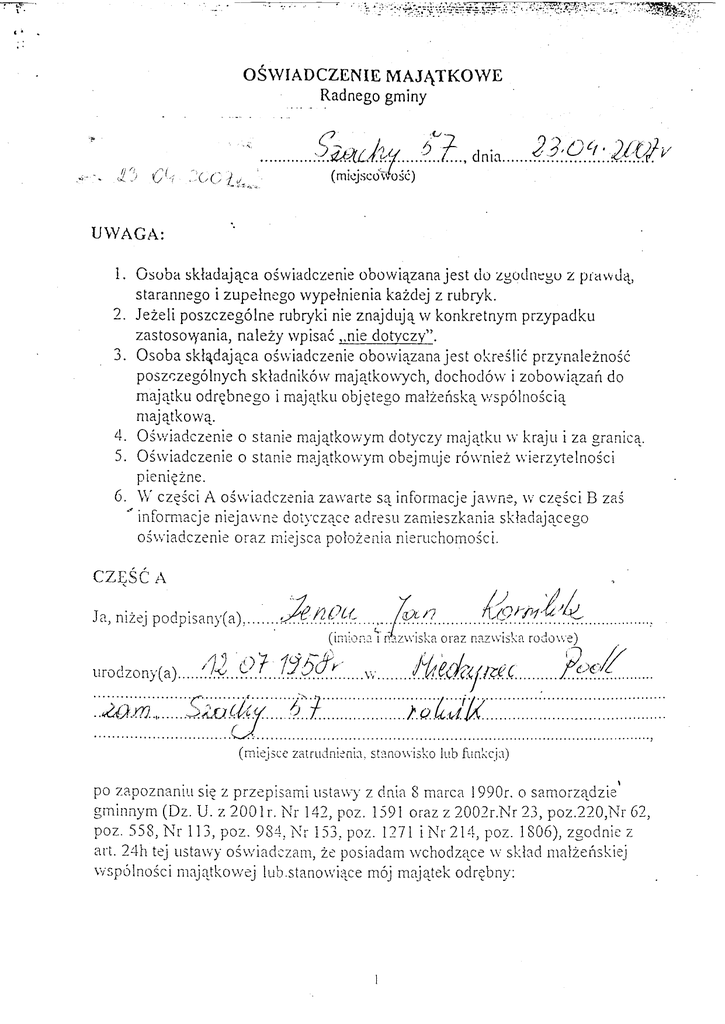 OŚWIADCZENIE MAJĄTKOWE
Radnego gminy
Szachy 57, dnia 23.04.2007r
(miejscowość)
23 04 2007
UWAGA:
1. Osoba składająca oświadczenie obowiązana jest do zgodnego z prawdą,
starannego i zupełnego wypełnienia każdej z rubryk.
2. Jeżeli poszczególne rubryki nie znajdują w konkretnym przypadku
zastosowania, należy wpisać „nie dotyczy”.
3. Osoba składająca oświadczenie obowiązana jest określić przynależność
poszczególnych składników majątkowych, dochodów i zobowiązań do
majątku odrębnego i majątku objętego małżeńską wspólnością
majątkową.
4. Oświadczenie o stanie majątkowym dotyczy majątku w kraju i za granicą.
5. Oświadczenie o stanie majątkowym obejmuje również wierzytelności
pieniężne.
6. W części A oświadczenia zawarte są informacje jawne, w części B zaś
informacje niejawne dotyczące adresu zamieszkania składającego
oświadczenie oraz miejsca położenia nieruchomości.
CZĘŚĆ A
Ja, niżej podpisany(a), Zenon Jan
(imiona i nazwiska oraz nazwiska rodowe)
urodzony(a) 12 07 1958r w Międzyrzec Podl
zam. Szachy 57 rolnik
(miejsce zatrudnienia, stanowisko lub funkcja)
po zapoznaniu się z przepisami ustawy z dnia 8 marca 1990r. o samorządzie
gminnym (Dz. U. z 2001r. Nr 142, poz. 1591 oraz z 2002r.Nr 23, poz.220,Nr 62,
poz. 558, Nr 113, poz. 984, Nr 153, poz. 1271 i Nr 214, poz. 1806), zgodnie z
art. 24h tej ustawy oświadczam, że posiadam wchodzące w skład małżeńskiej
wspólności majątkowej lub stanowiące mój majątek odrębny:
1